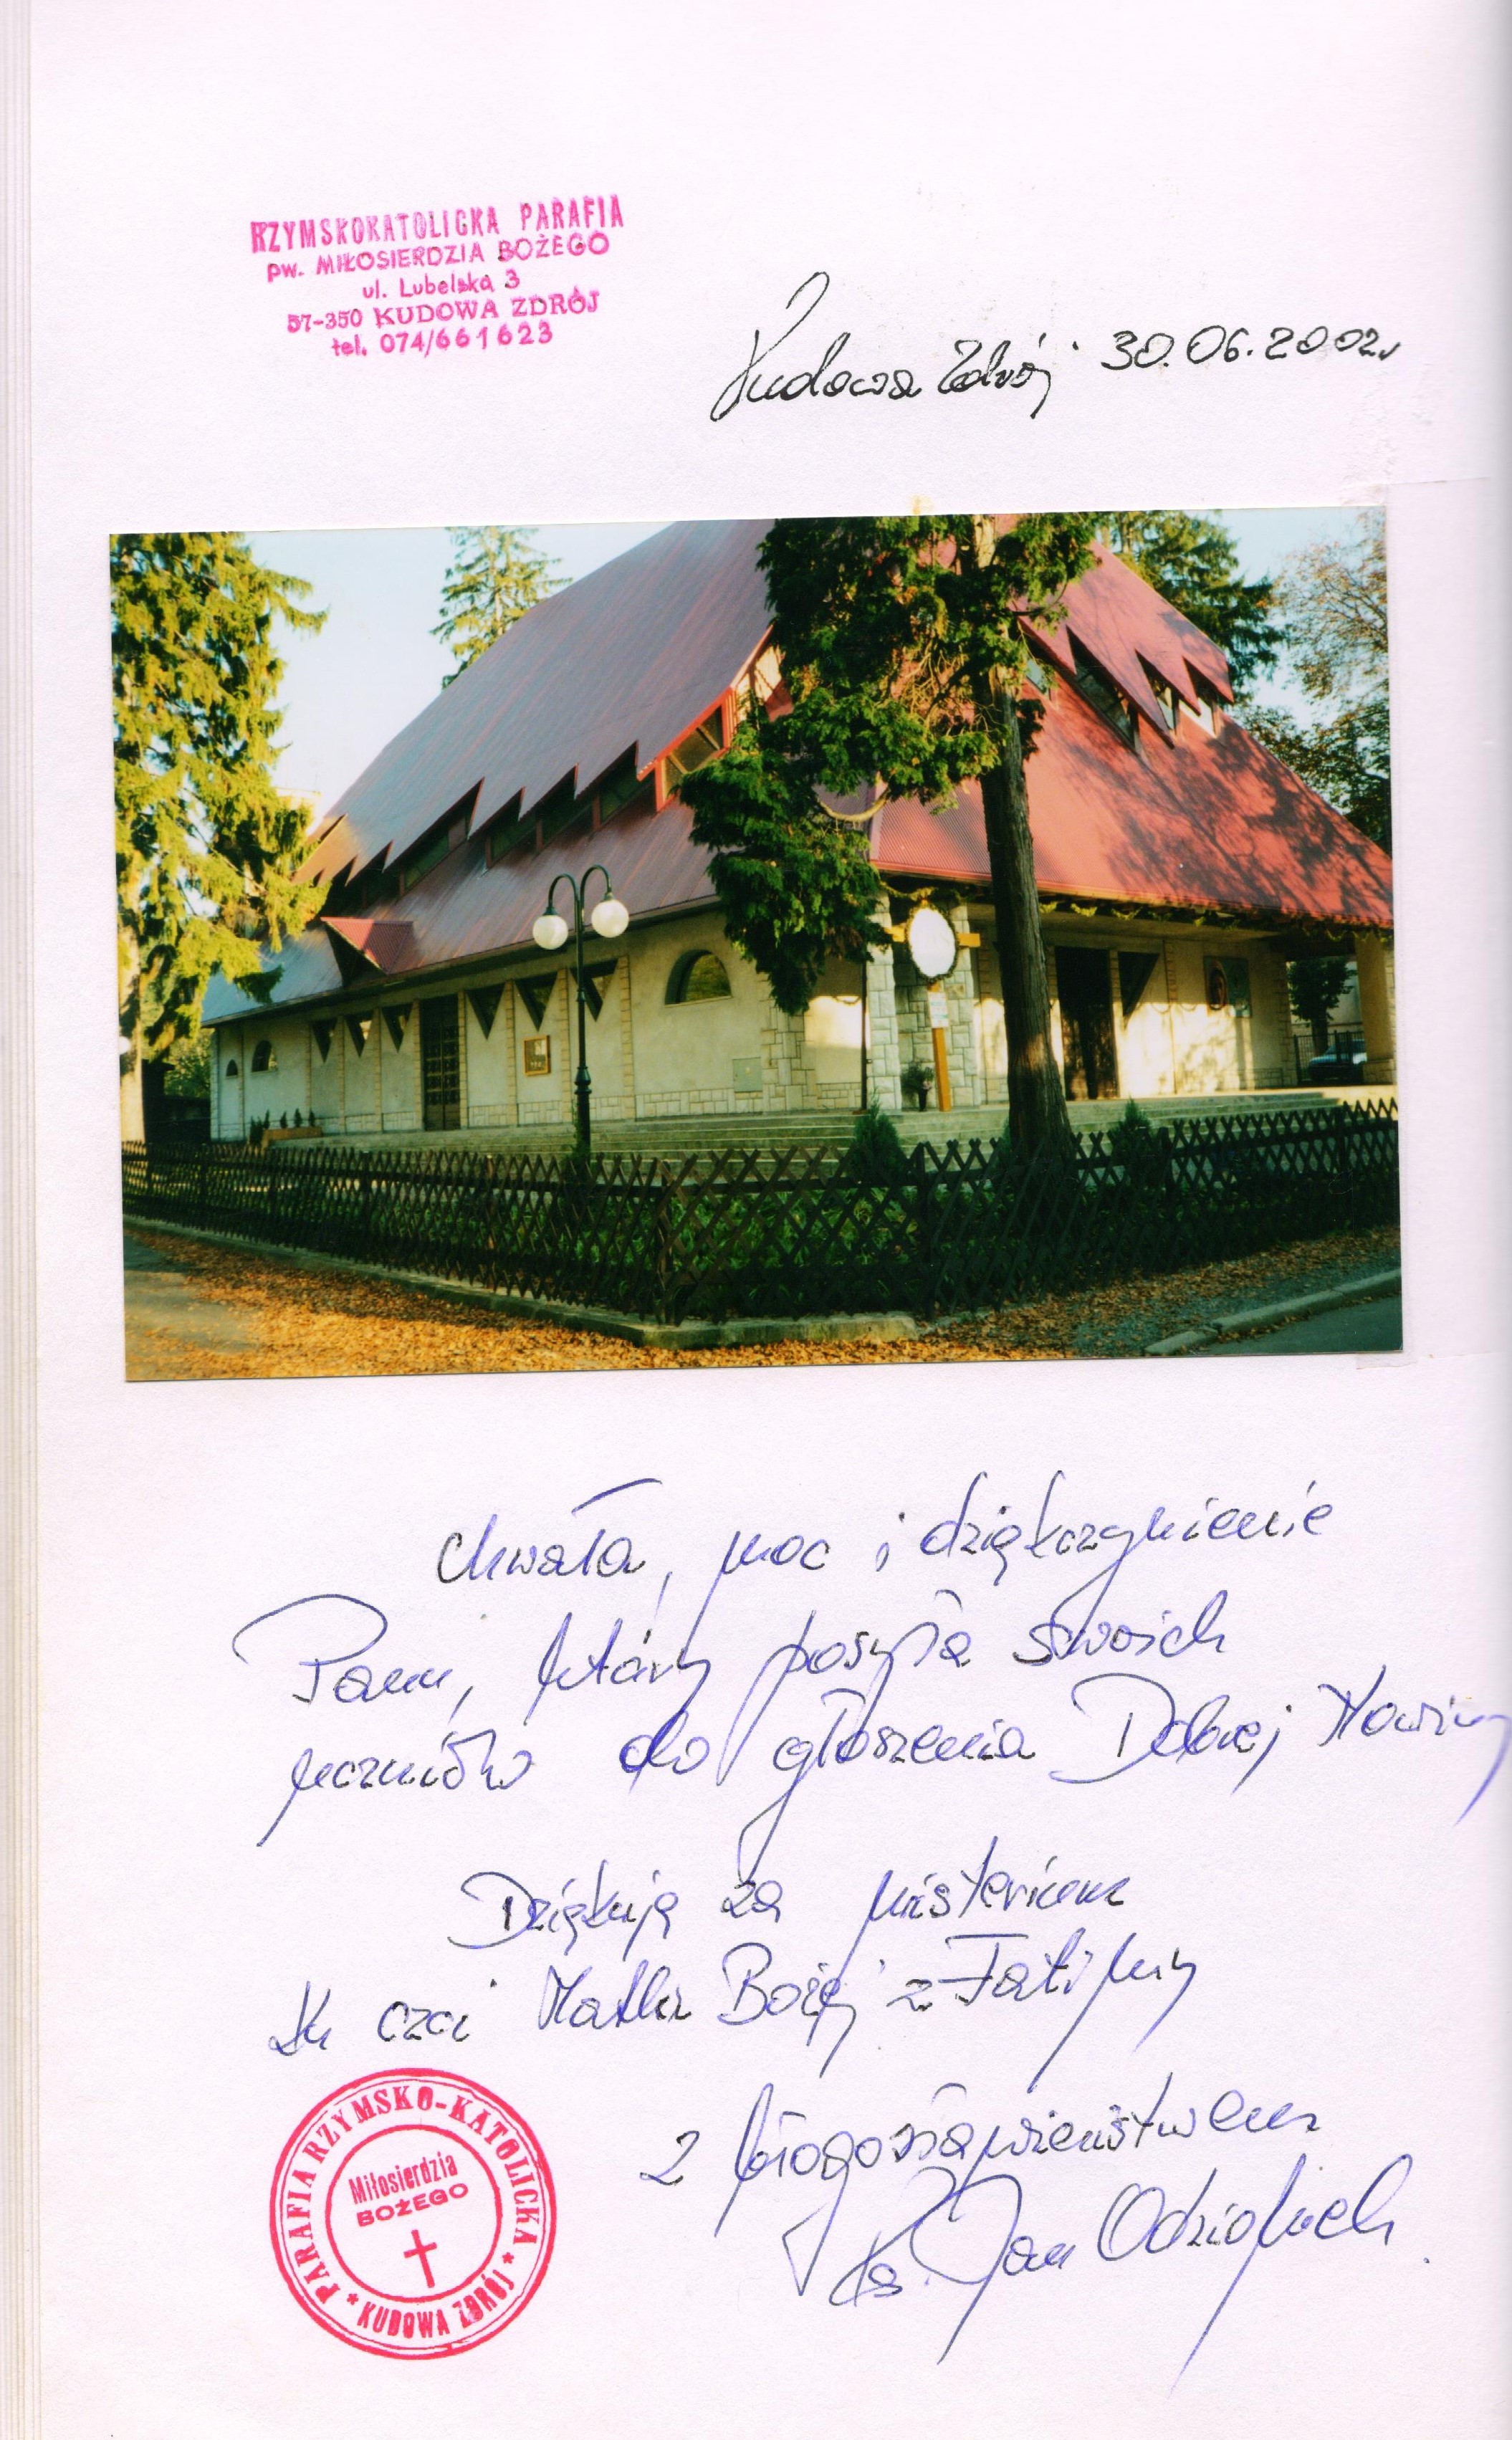 RZYMSKOKATOLICKA PARAFIA
pw. MIŁOSIERDZIA BOŻEGO
ul. Lubelska 3
57-350 KUDOWA ZDRÓJ
tel. 074/661623
Kudowa Zdrój 30.06.2002r
Chwała, moc i dziękczynienie
Panu, który posyła swoich
uczniów do głoszenia Dobrej Nowiny
Dziękuję za misterium
ku czci Matki Bożej z Fatimy
Z błogosławieństwem
Ks. Jan
PARAFIA RZYMSKO-KATOLICKA
Miłosierdzia
BOŻEGO
* KUDOWA ZDRÓJ *